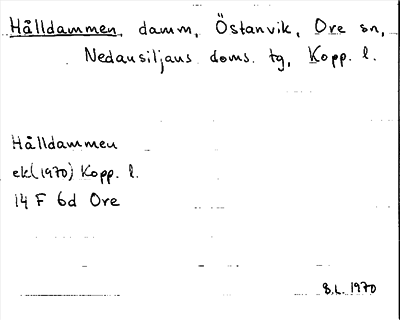 Hålldammen, damm, Östanvik, Ore sn,
Nedansiljans doms. tg, Kopp. l.
Hålldammen
ek(1970) Kopp. l.
14 F 6d Ore
B.L. 1970